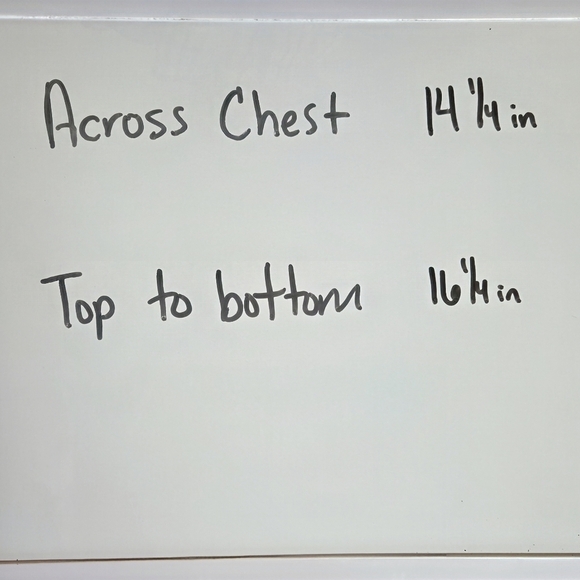 Across Chest 14 1/4 in
Top to bottom 16 1/4 in